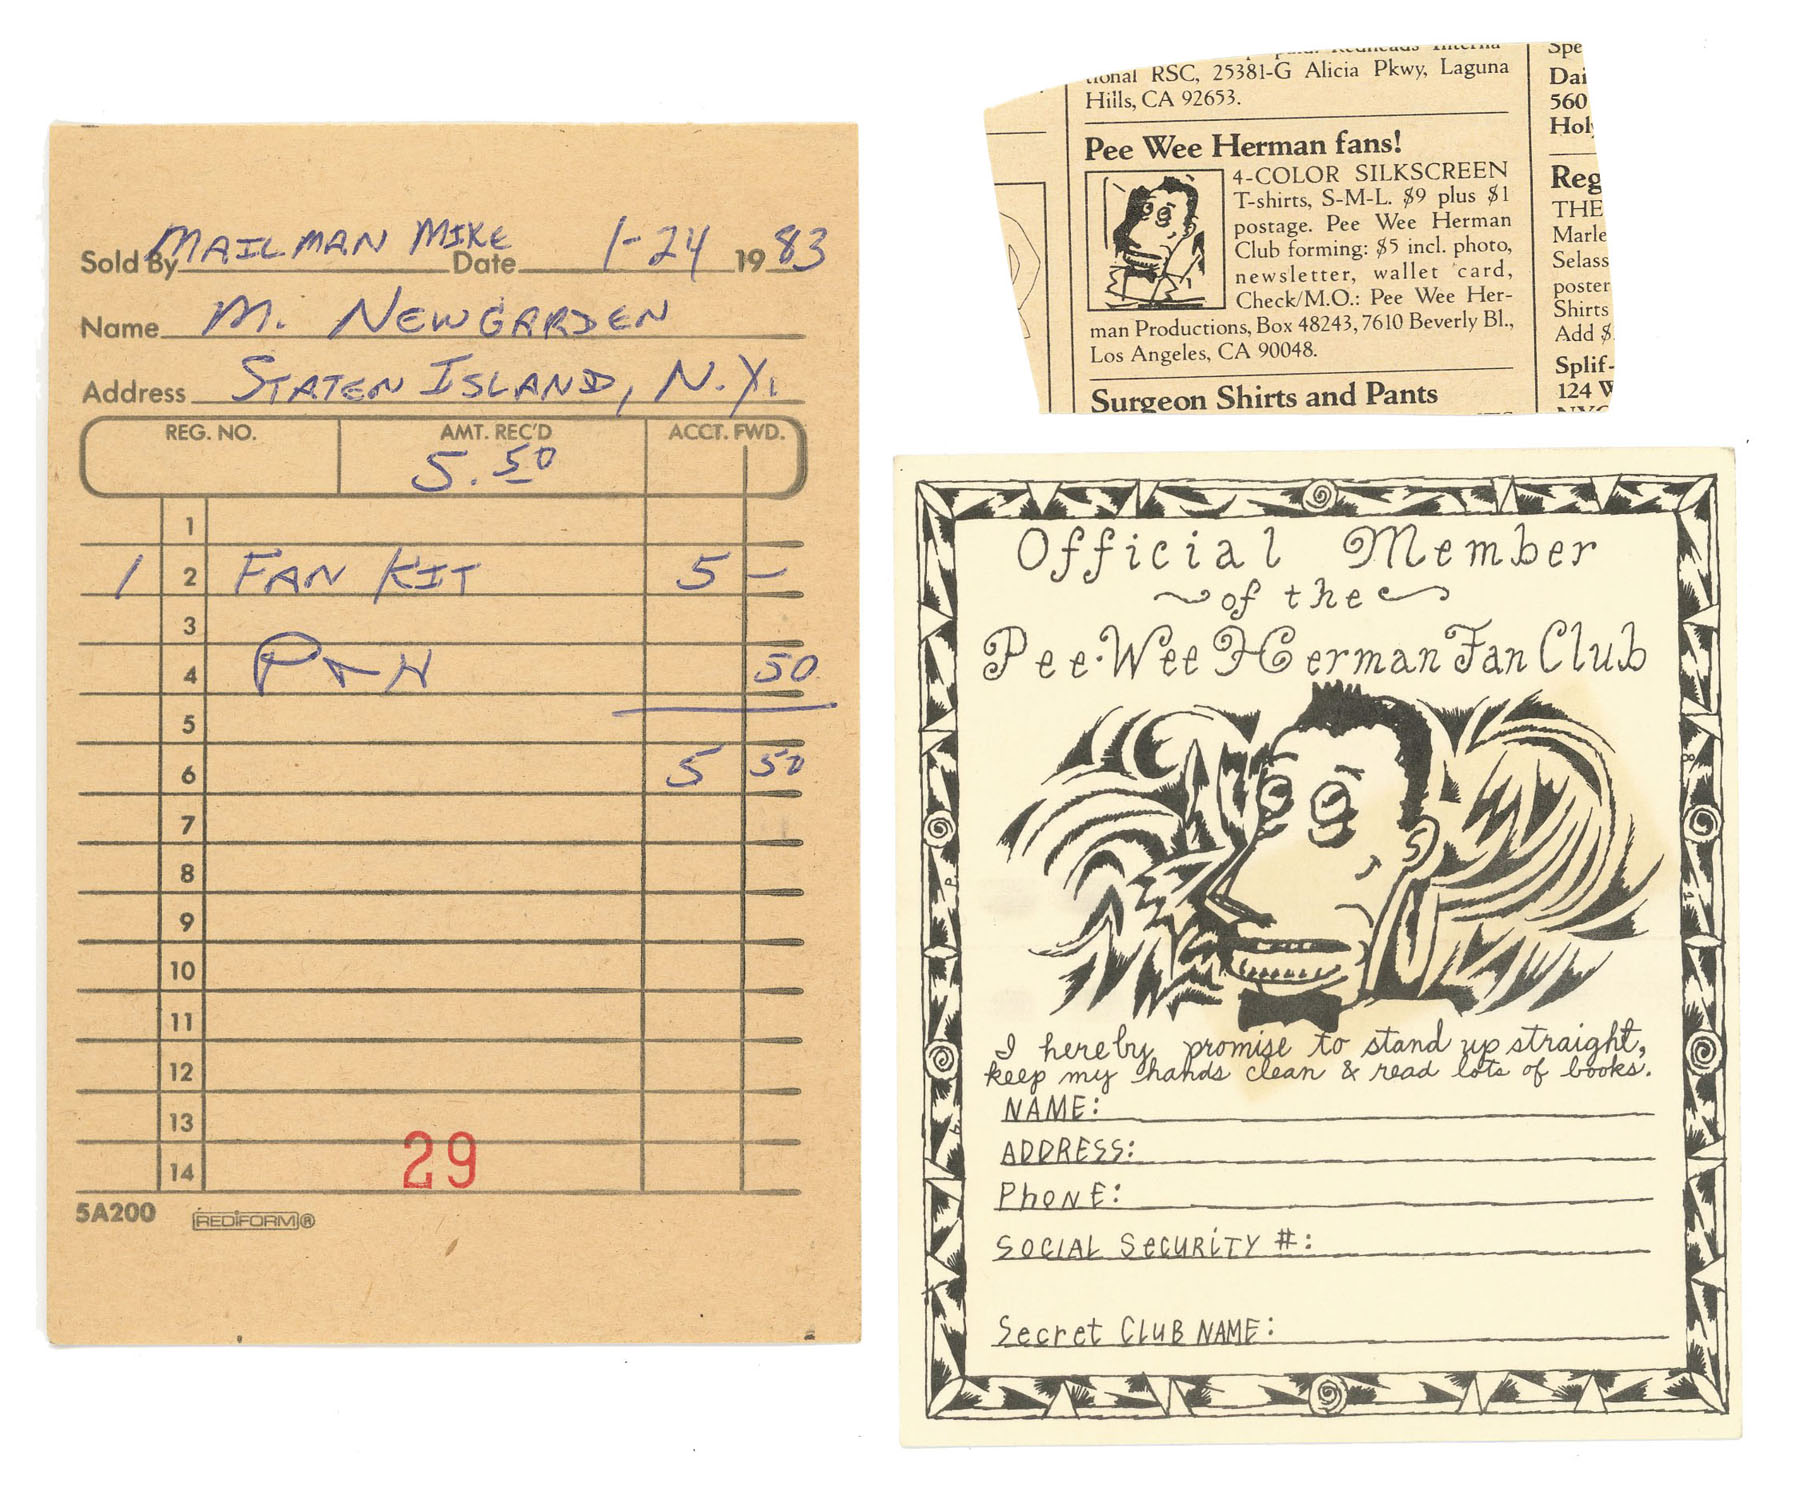 Sold By MAILMAN MIKE Date 1-24 1983
Name M. NEWGARDEN
Address STATEN ISLAND, N.Y.
REG. NO. AMT. REC'D ACCT. FWD.
5.50
1
1 2 FAN KIT 5 —
3
4 P + H 50
5
6 5 50
7
8
9
10
11
12
13
14
29
5A200 REDIFORM®
tional RSC, 25381-G Alicia Pkwy, Laguna
Hills, CA 92653.
Pee Wee Herman fans!
4-COLOR SILKSCREEN
T-shirts, S-M-L. $9 plus $1
postage. Pee Wee Herman
Club forming: $5 incl. photo,
newsletter, wallet card,
Check/M.O.: Pee Wee Her-
man Productions, Box 48243, 7610 Beverly Bl.,
Los Angeles, CA 90048.
Surgeon Shirts and Pants
Spe
Dai
560
Hol
Reg
THE
Marle
Selass
poster
Shirts
Add $
Split-
124 W
NYC
Official Member
of the
Pee-Wee Herman Fan Club
I hereby promise to stand up straight,
keep my hands clean & read lots of books.
NAME:
ADDRESS:
PHONE:
SOCIAL SECURITY #:
Secret CLUB NAME: